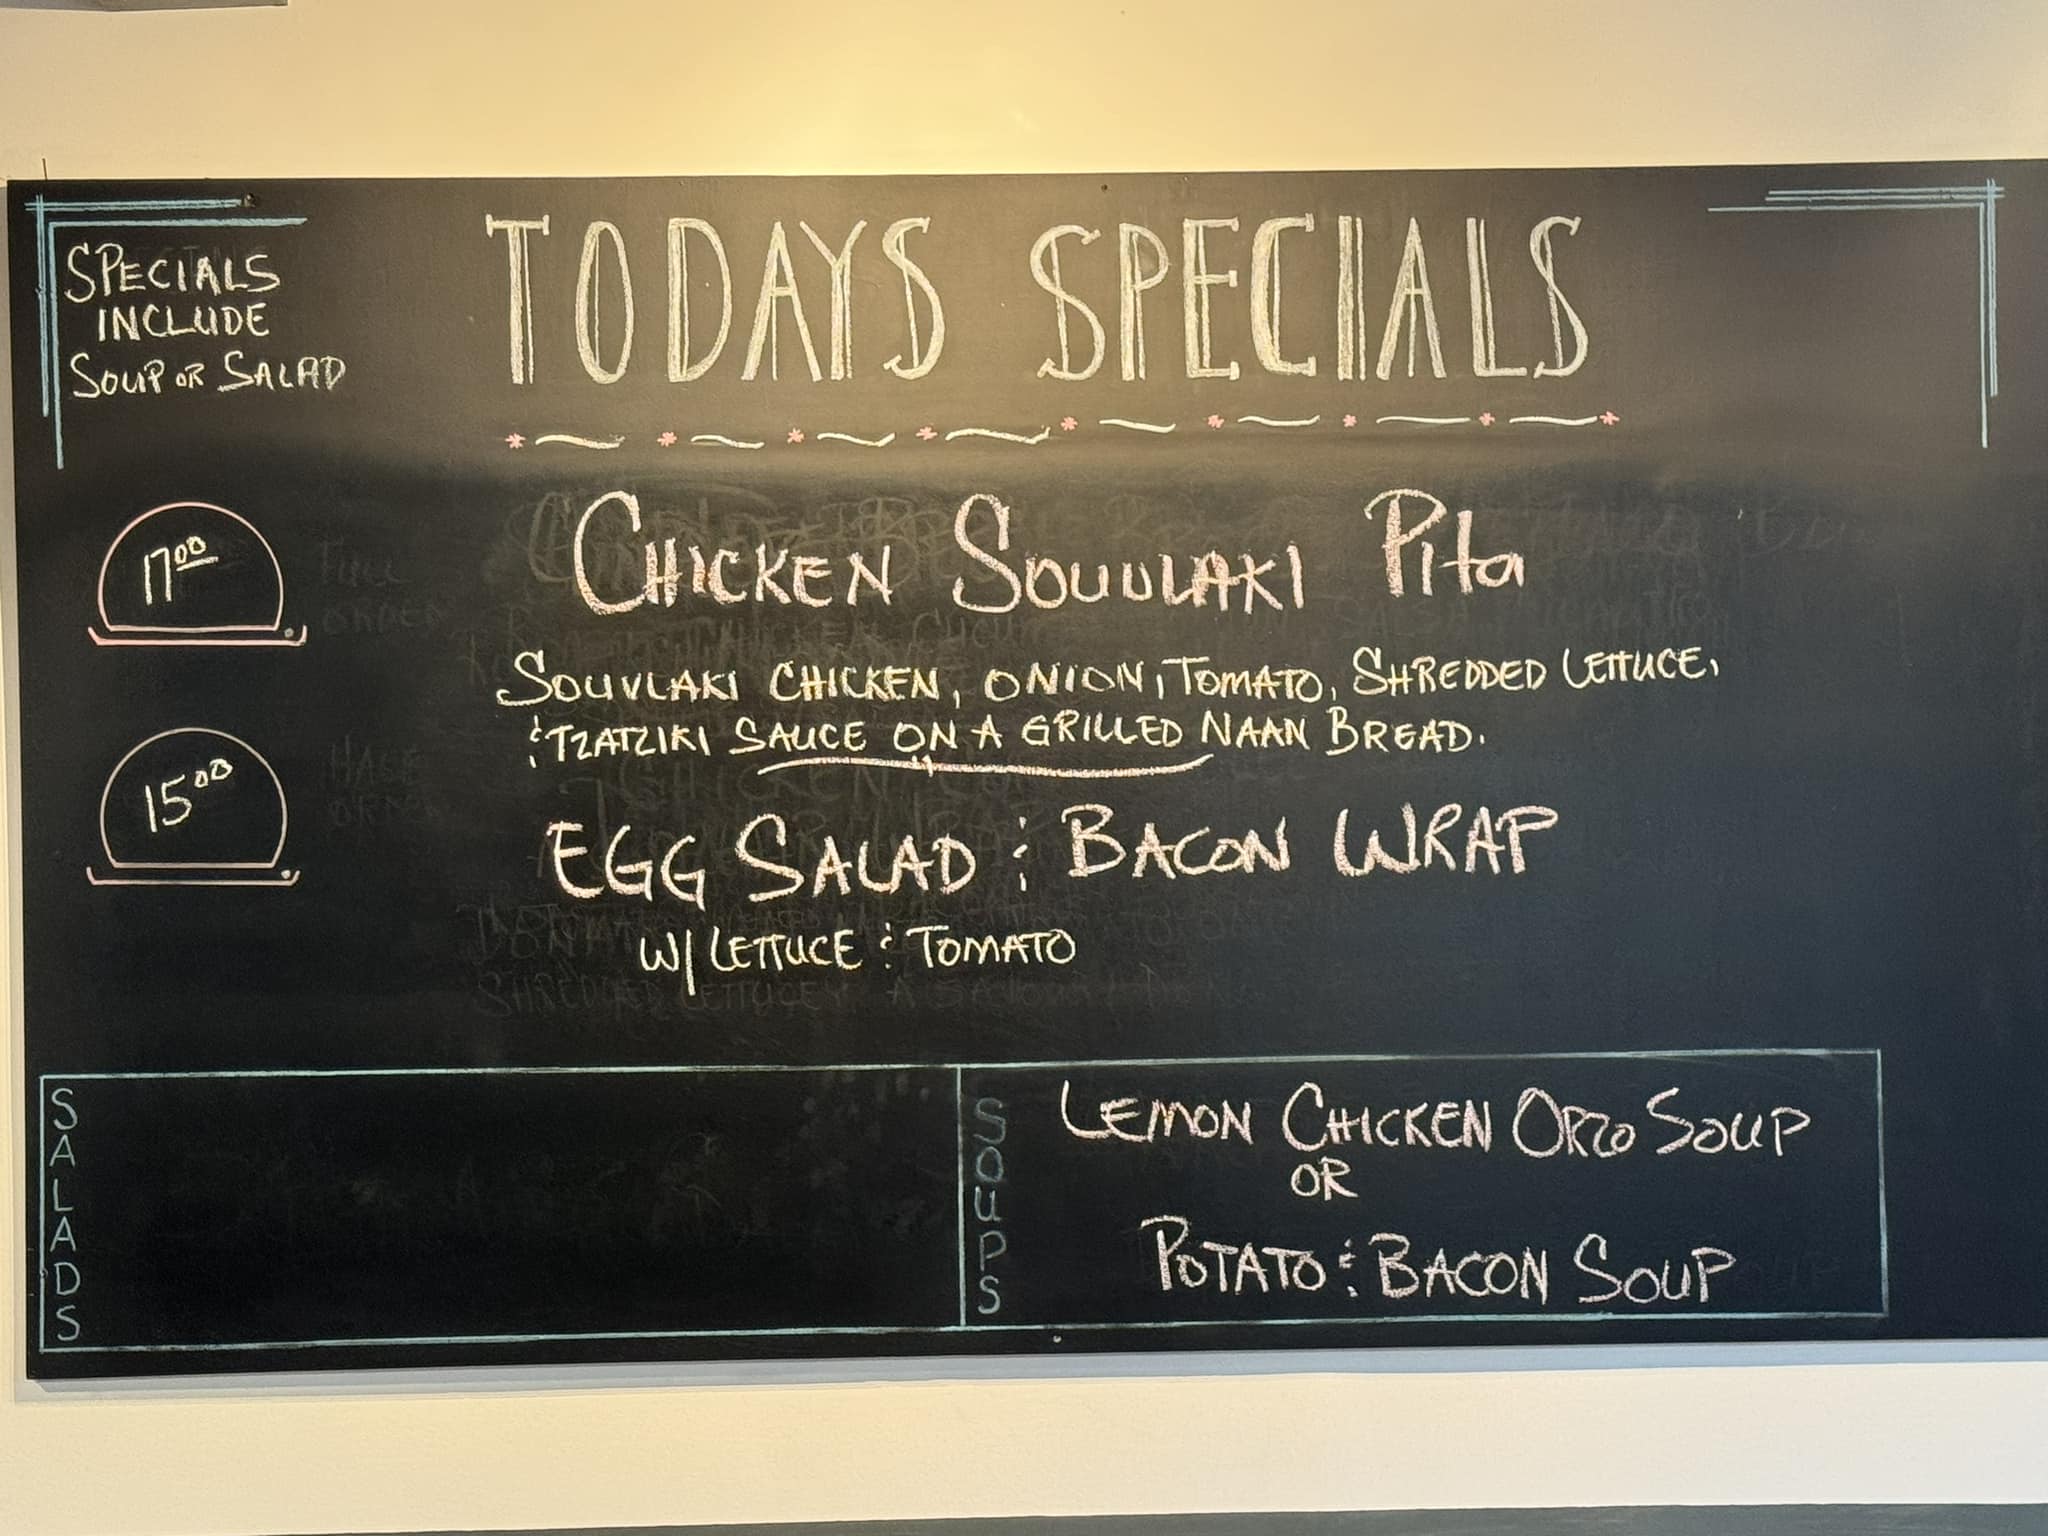 SPECIALS
INCLUDE
SOUP OR SALAD
TODAYS SPECIALS
17.00
CHICKEN SOUVLAKI Pita
SOUVLAKI CHICKEN, ONION, TOMATO, SHREDDED LETTUCE,
& TZATZIKI SAUCE ON A GRILLED NAAN BREAD.
15.00
EGG SALAD & BACON WRAP
W/ LETTUCE & TOMATO
SALADS
SOUPS
LEMON CHICKEN ORZO SOUP
OR
POTATO & BACON SOUP